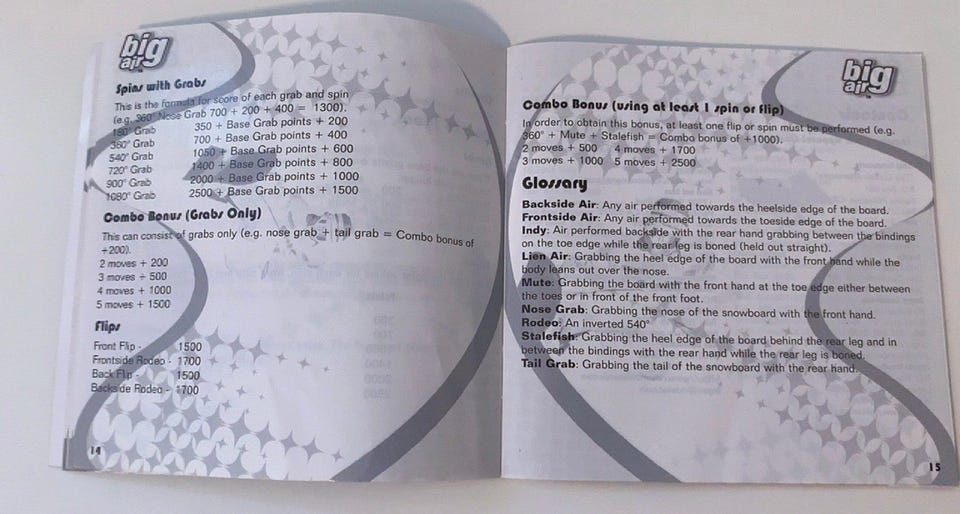 big
air
Spins with Grabs
This is the formula for score of each grab and spin
(e.g. 360° Nose Grab 700 + 200 + 400 = 1300).
180° Grab 350 + Base Grab points + 200
360° Grab 700 + Base Grab points + 400
540° Grab 1050 + Base Grab points + 600
720° Grab 1400 + Base Grab points + 800
900° Grab 2000 + Base Grab points + 1000
1080° Grab 2500 + Base Grab points + 1500
Combo Bonus (Grabs Only)
This can consist of grabs only (e.g. nose grab + tail grab = Combo bonus of
+200).
2 moves + 200
3 moves + 500
4 moves + 1000
5 moves + 1500
Flips
Front Flip - 1500
Frontside Rodeo - 1700
Back Flip - 1500
Backside Rodeo - 1700
14
big
air
Combo Bonus (using at least 1 spin or flip)
In order to obtain this bonus, at least one flip or spin must be performed (e.g.
360° + Mute + Stalefish = Combo bonus of +1000).
2 moves + 500 4 moves + 1700
3 moves + 1000 5 moves + 2500
Glossary
Backside Air: Any air performed towards the heelside edge of the board.
Frontside Air: Any air performed towards the toeside edge of the board.
Indy: Air performed backside with the rear hand grabbing between the bindings
on the toe edge while the rear leg is boned (held out straight).
Lien Air: Grabbing the heel edge of the board with the front hand while the
body leans out over the nose.
Mute: Grabbing the board with the front hand at the toe edge either between
the toes or in front of the front foot.
Nose Grab: Grabbing the nose of the snowboard with the front hand.
Rodeo: An inverted 540°
Stalefish: Grabbing the heel edge of the board behind the rear leg and in
between the bindings with the rear hand while the rear leg is boned.
Tail Grab: Grabbing the tail of the snowboard with the rear hand.
15